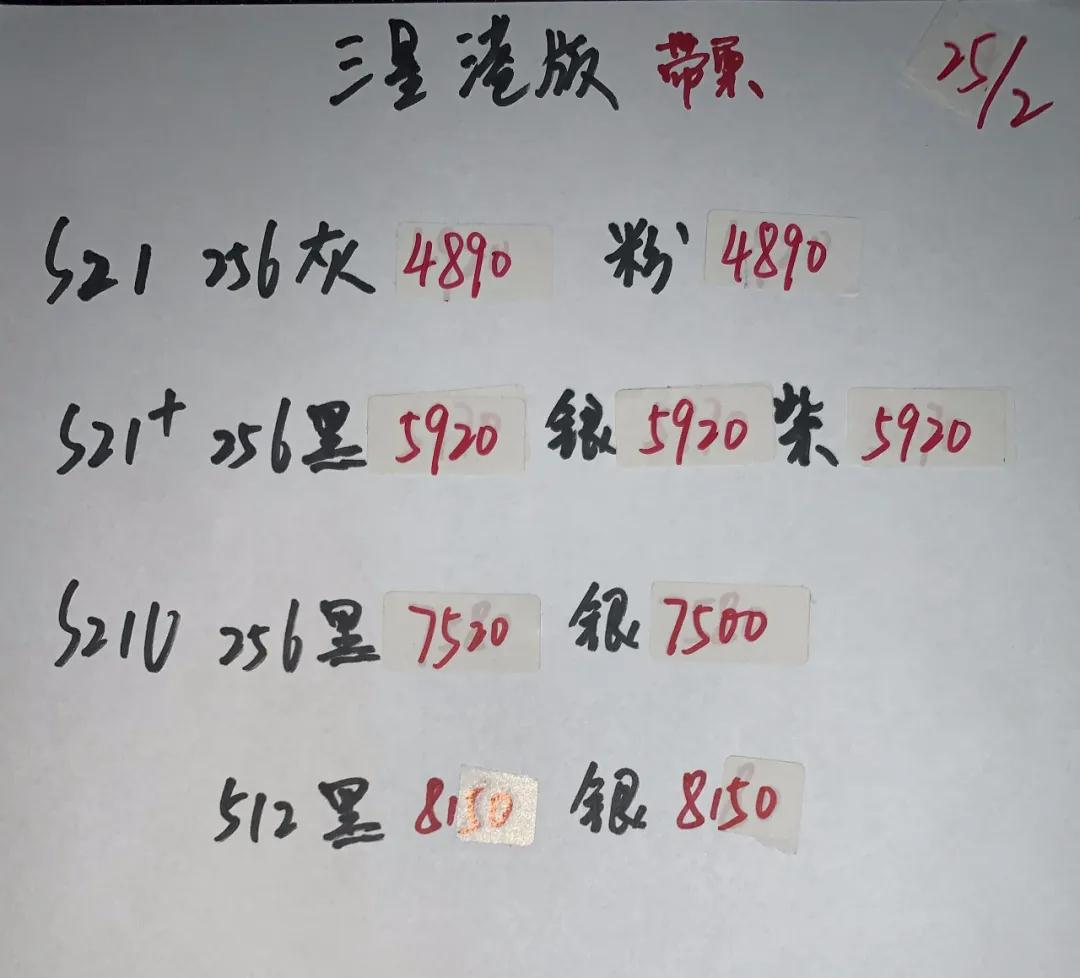 三星港版 带票 25/2
S21 256灰 4890 粉 4890
S21+ 256黑 5920 银 5920 紫 5920
S21U 256黑 7520 银 7500
512黑 8150 银 8150